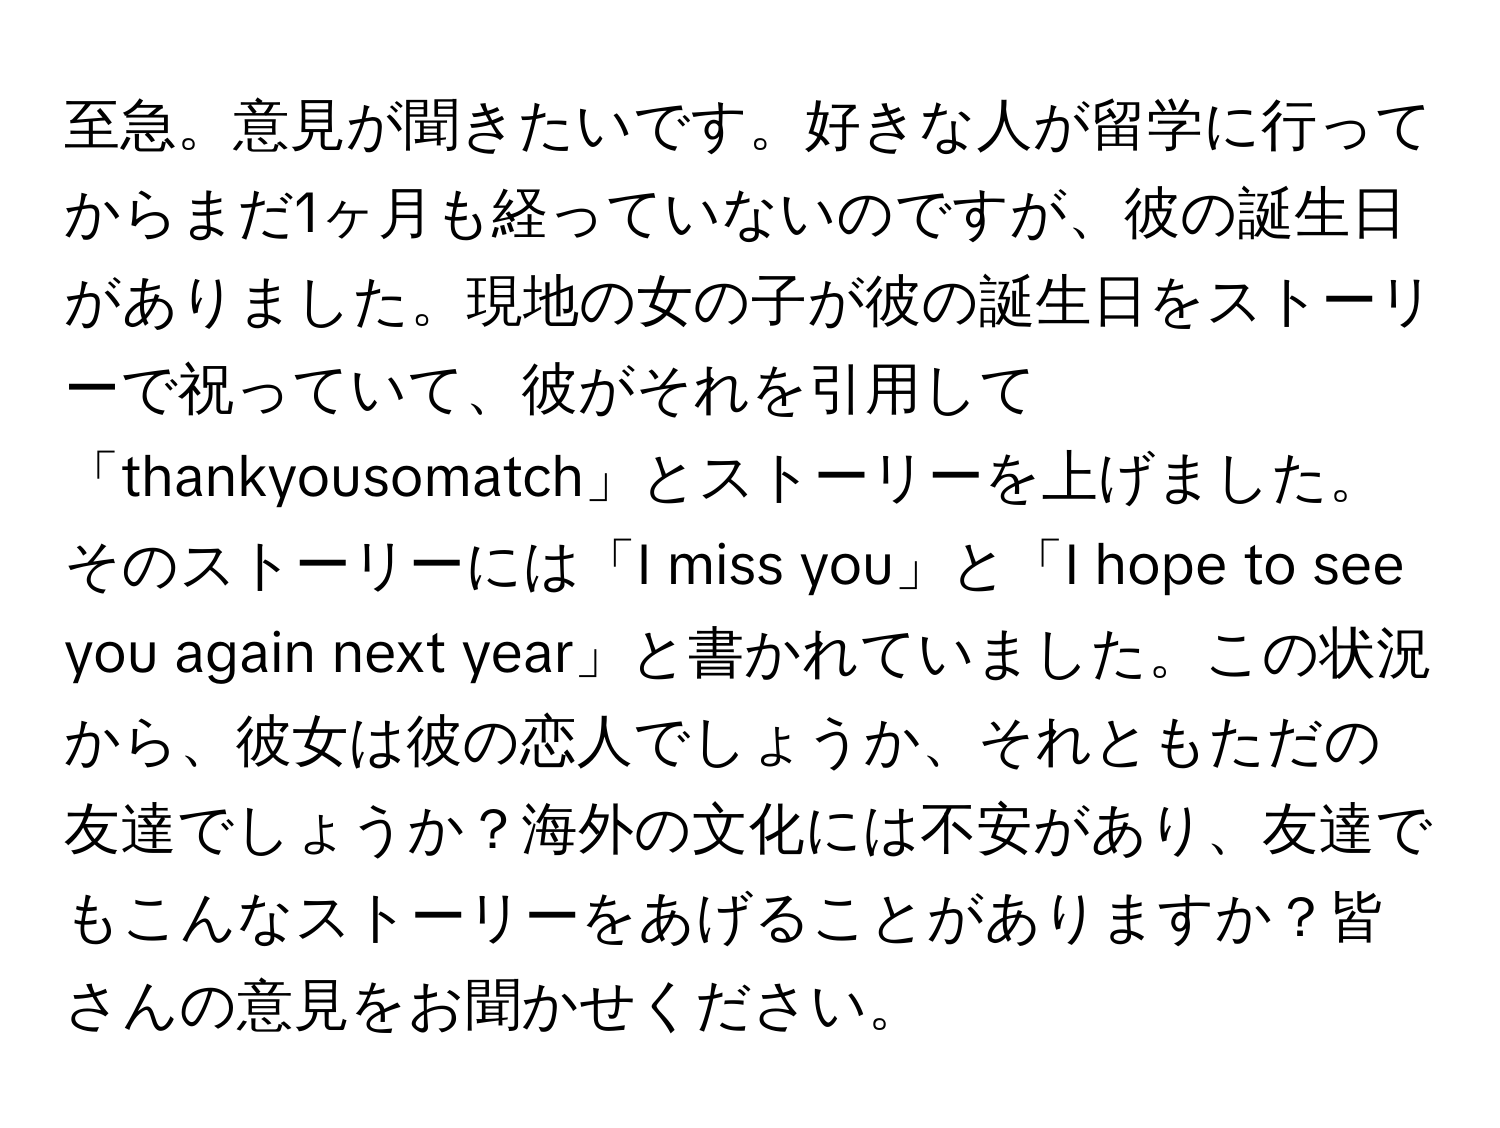 至急。意見が聞きたいです。好きな人が留学に行って
からまだ1ヶ月も経っていないのですが、彼の誕生日
がありました。現地の女の子が彼の誕生日をストーリ
ーで祝っていて、彼がそれを引用して
「thankyousomatch」とストーリーを上げました。
そのストーリーには「I miss you」と「I hope to see
you again next year」と書かれていました。この状況
から、彼女は彼の恋人でしょうか、それともただの
友達でしょうか？海外の文化には不安があり、友達で
もこんなストーリーをあげることがありますか？皆
さんの意見をお聞かせください。